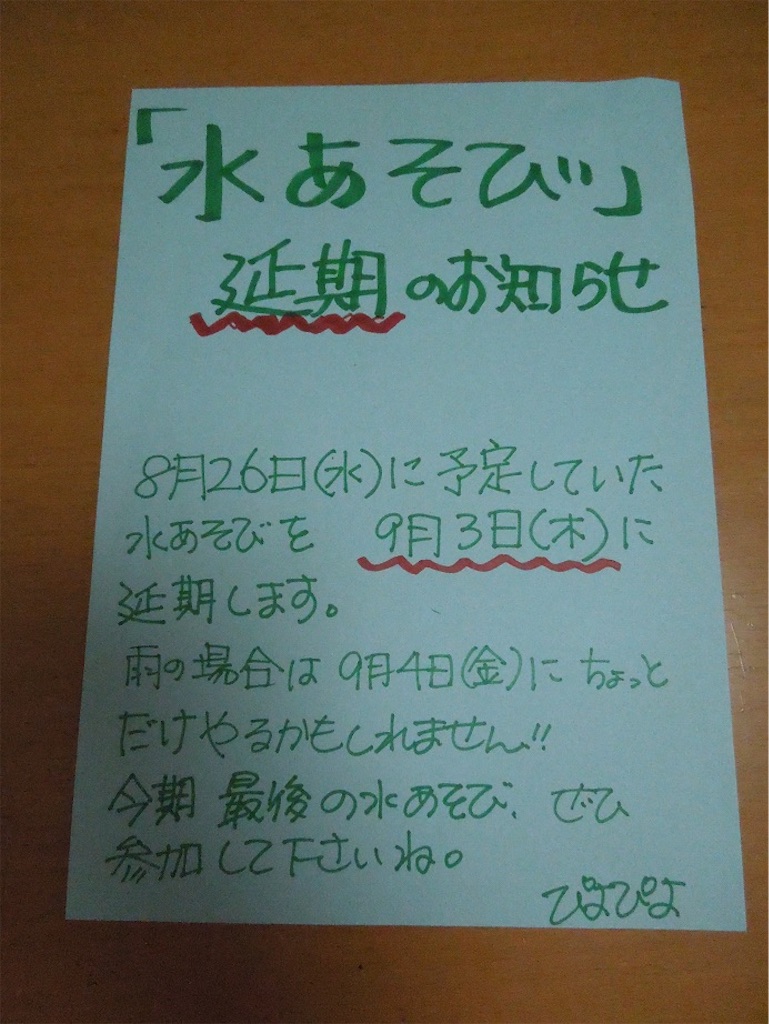 「水あそび」
延期のお知らせ
8月26日(水)に予定していた
水あそびを 9月3日(木)に
延期します。
雨の場合は 9月4日(金)にちょっと
だけやるかもしれません!!
今期 最後の水あそび、ぜひ
参加して下さいね。
ぴよぴよ